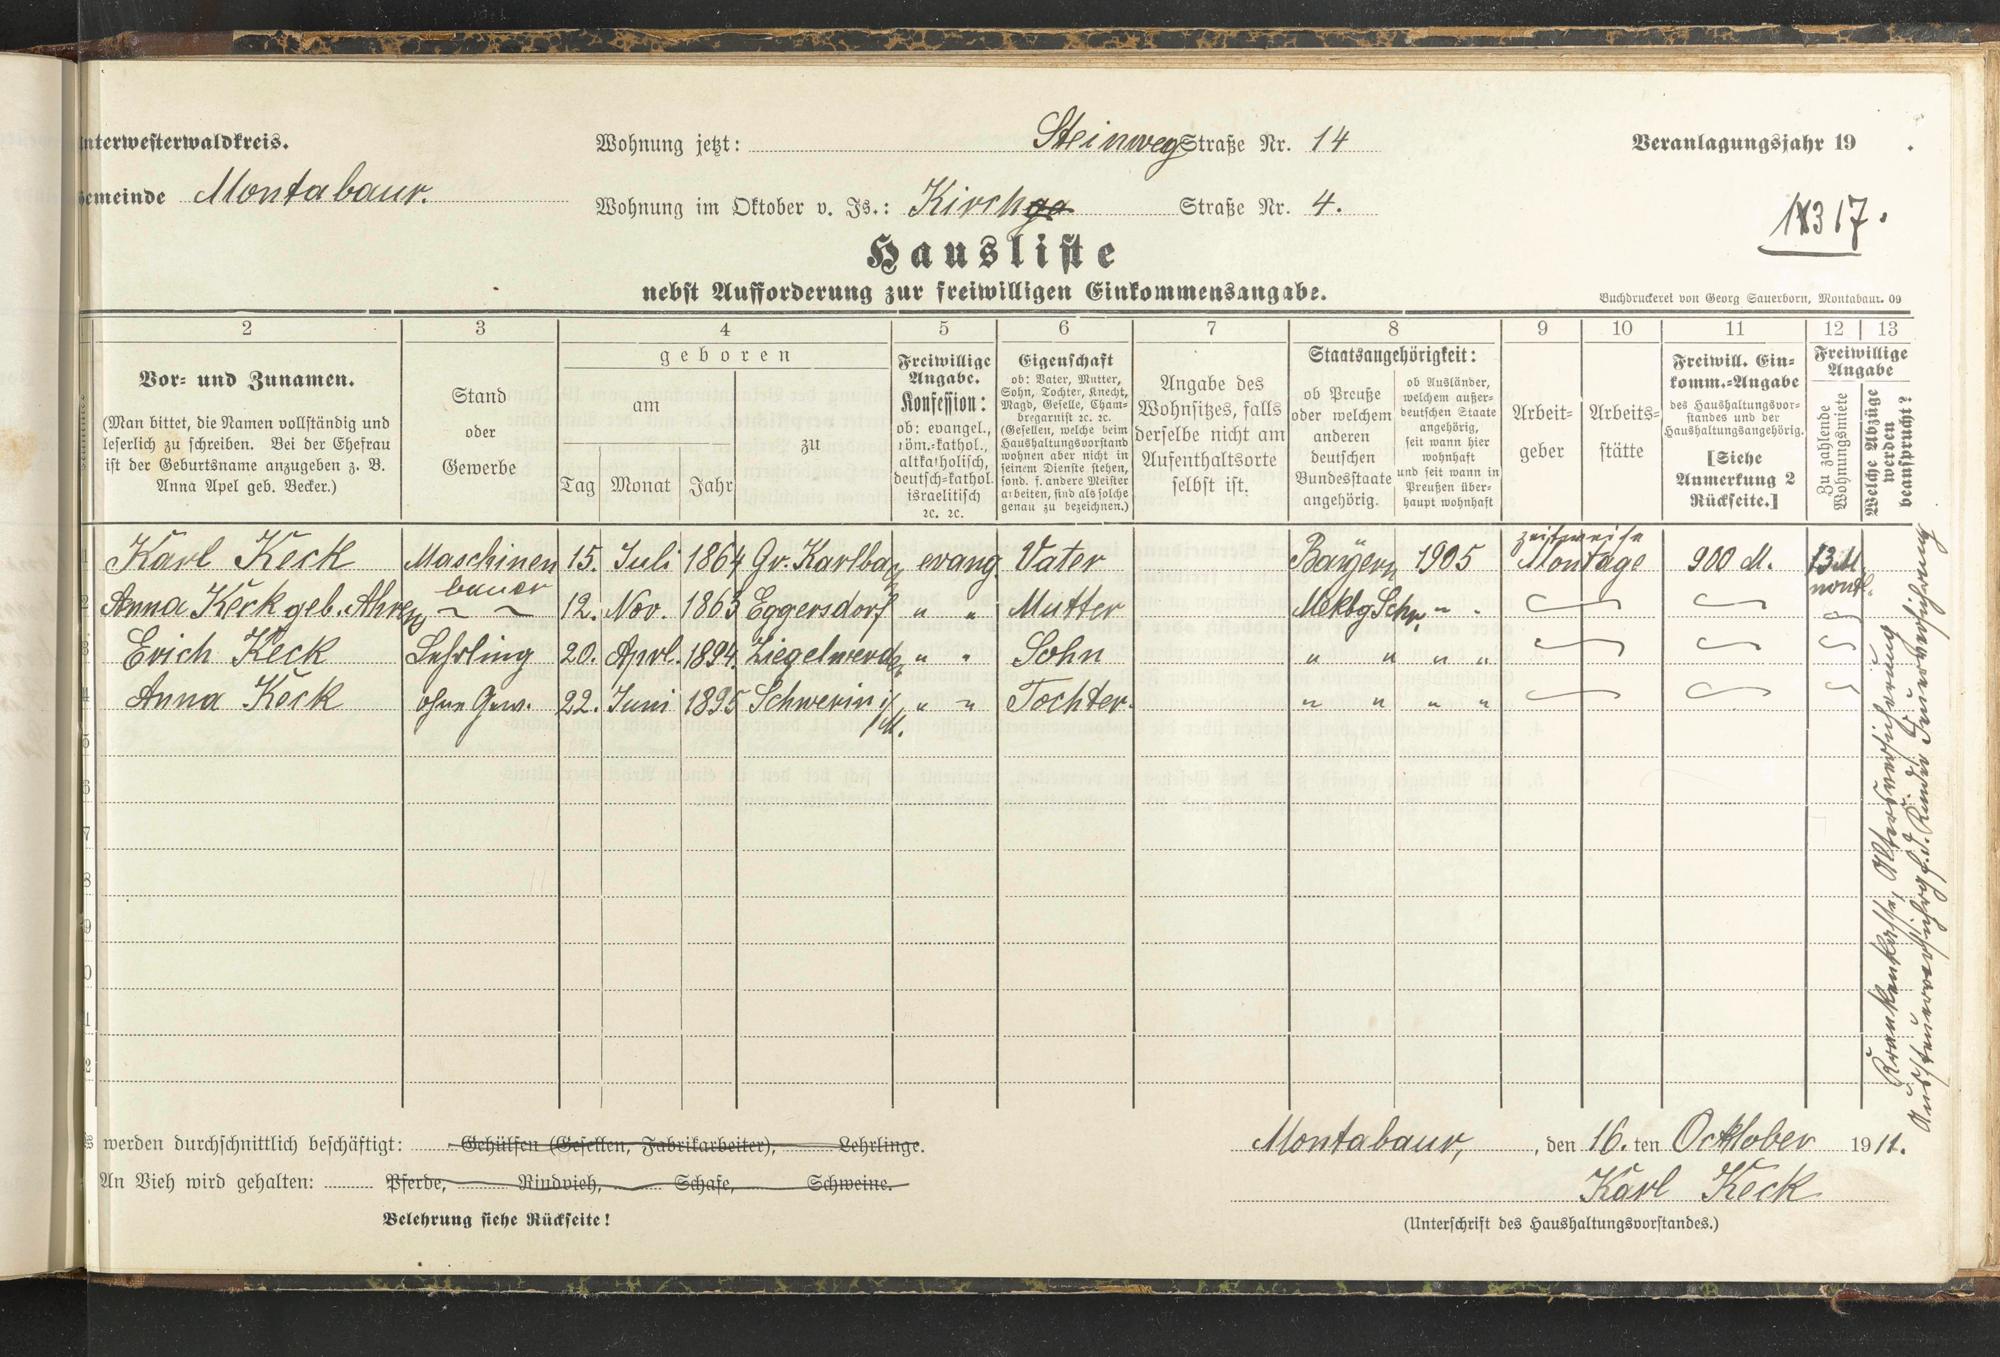 nterwesterwaldkreis.
Wohnung jetzt: Steinweg Straße Nr. 14
Veranlagungsjahr 19 .
emeinde Montabaur.
Wohnung im Oktober v. Js.: Kirch Straße Nr. 4.
317.
Hausliste
nebst Aufforderung zur freiwilligen Einkommensangabe.
Buchdruckerei von Georg Sauerborn, Montabaur. 09
2 3 4 5 6 7 8 9 10 11 12 13
Vor- und Zunamen.
(Man bittet, die Namen vollständig und
leserlich zu schreiben. Bei der Ehefrau
ist der Geburtsname anzugeben z. B.
Anna Apel geb. Becker.)
Stand
oder
Gewerbe
geboren
am
zu
Tag Monat Jahr
Freiwillige
Angabe.
Konfession:
ob: evangel.,
röm.-kathol.,
altkatholisch,
deutsch-kathol.
israelitisch
ꝛc. ꝛc.
Eigenschaft
ob: Vater, Mutter,
Sohn, Tochter, Knecht,
Magd, Geselle, Cham-
bregarnist ꝛc. ꝛc.
(Gesellen, welche beim
Haushaltungsvorstand
wohnen aber nicht in
seinem Dienste stehen,
sond. f. andere Meister
arbeiten, sind als solche
genau zu bezeichnen.)
Angabe des
Wohnsitzes, falls
derselbe nicht am
Aufenthaltsorte
selbst ist.
Staatsangehörigkeit:
ob Preuße
oder welchem
anderen
deutschen
Bundesstaate
angehörig.
ob Ausländer,
welchem außer-
deutschen Staate
angehörig,
seit wann hier
wohnhaft
und seit wann in
Preußen über-
haupt wohnhaft
Arbeit-
geber
Arbeits-
stätte
Freiwill. Ein-
komm.-Angabe
des Haushaltungsvor-
standes und der
Haushaltungsangehörig.
[Siehe
Anmerkung 2
Rückseite.]
Freiwillige
Angabe
Zu zahlende
Wohnungsmiete
Welche Abzüge
werden
beansprucht?
1 Karl Keck Maschinen bauer 15. Juli 1864 Gr. Karlba evang. Vater Bayern 1905 zeitweise Montage 900 M. 13 M monatl.
2 Anna Keck geb. Ahrens 12. Nov. 1863 Eggersdorf " " Mutter Meklbg Schw. " "
3 Erich Keck Lehrling 20. Aprl. 1894 " " Sohn " " " "
4 Anna Keck ohne Gew. 22. Juni 1895 Schwerin i/M. " " Tochter. " " " "
5
6
7
8
9
0
1
2
Krankenkasse, Altersversicherung
werden durchschnittlich beschäftigt: Gehülfen (Gesellen, Fabrikarbeiter), Lehrlinge.
An Vieh wird gehalten: Pferde, Rindvieh, Schafe, Schweine.
Belehrung siehe Rückseite!
Montabaur, , den 16. ten Ocktober 1911.
Karl Keck
(Unterschrift des Haushaltungsvorstandes.)